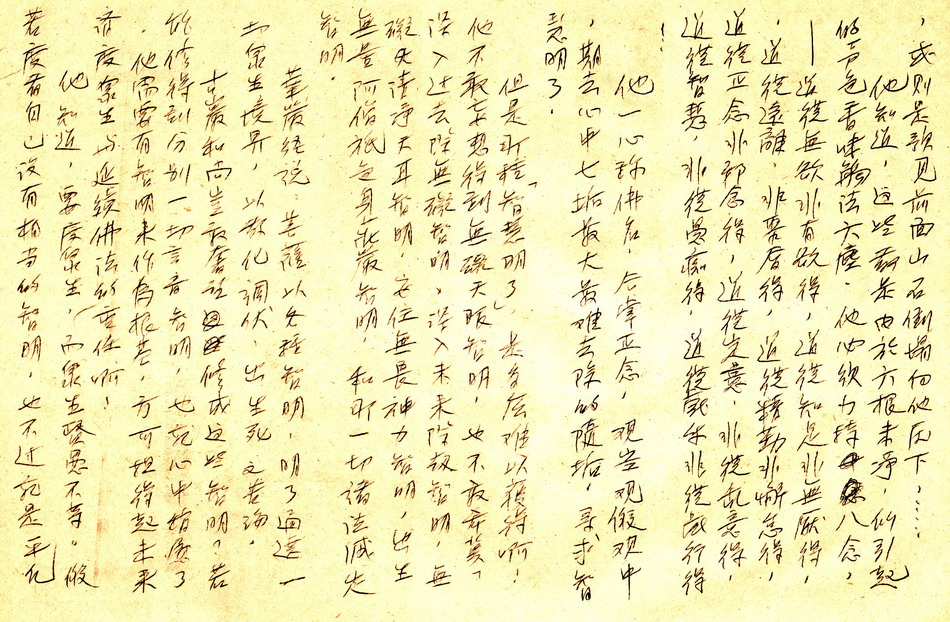 ，或則是設見前面山石倒塌向他反下……
他知道，這些都是由於六根未淨，似引起
的六色香味觸法六塵。他必欲力持八念，
——道從無欲非有欲得，道從知足非無厭得，
，道從遠離，非聚居得，道從精勤非懈怠得，
道從正念非邪念得，道從定意非從亂意得，
道從智慧，非從愚痴得，道從戲樂非從戲行得
！
他一心稱佛名，合掌正念，觀空觀假觀中
，期去心中七垢最大最難去除的瞋垢，尋求智
慧明了。
但是那種「智慧明了」，是多麼難以獲得啊！
他不敢妄想得到無礙天眼智明，也不敢奔冀「
深入過去際無礙智明、深入未來際劫智明、無
礙天清淨天耳智明、安住無畏神力智明、出生
無量阿僧祇色身莊嚴智明、和那一切諸法滅失
智明。
華嚴經說：菩薩以各種智明，明了通達一
切眾生境界，以教化調伏，出生死之苦海。
古巖和尚豈敢奢望修成這些智明？若
能修得到分別一切言音智明，也就心中揩處了
。他需要有智明來作為根基，方可担得起未來
濟度眾生與延續佛法的重任啊！
他知道 要度眾生，而眾生賢愚不等。假
若度者自己沒有相當的智明，也不过就是平凡